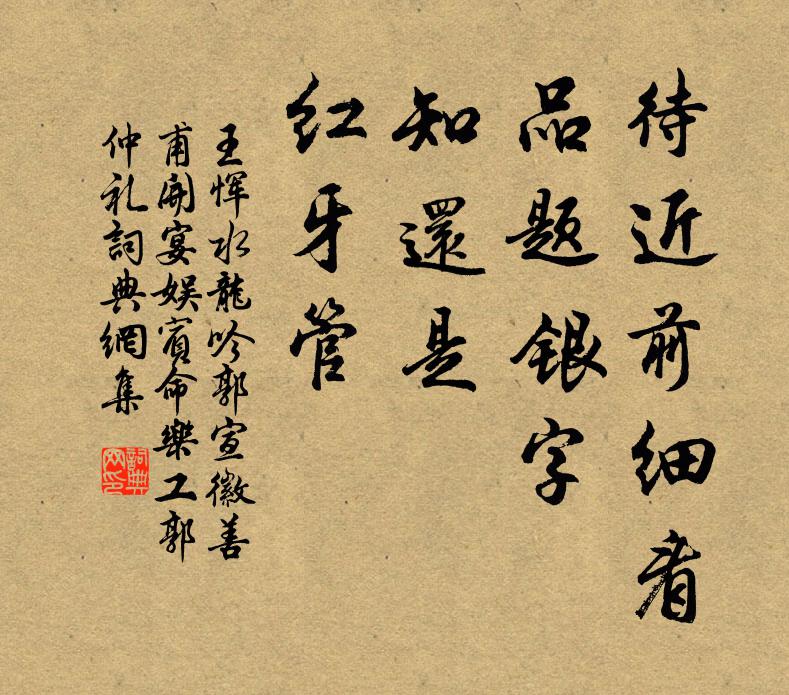 待近前细看
品题银字
知還是
红牙管
王恽水龍吟郭宣徽善
甫開宴娱賓命樂工郭
仲礼詞典網集
詞典网印